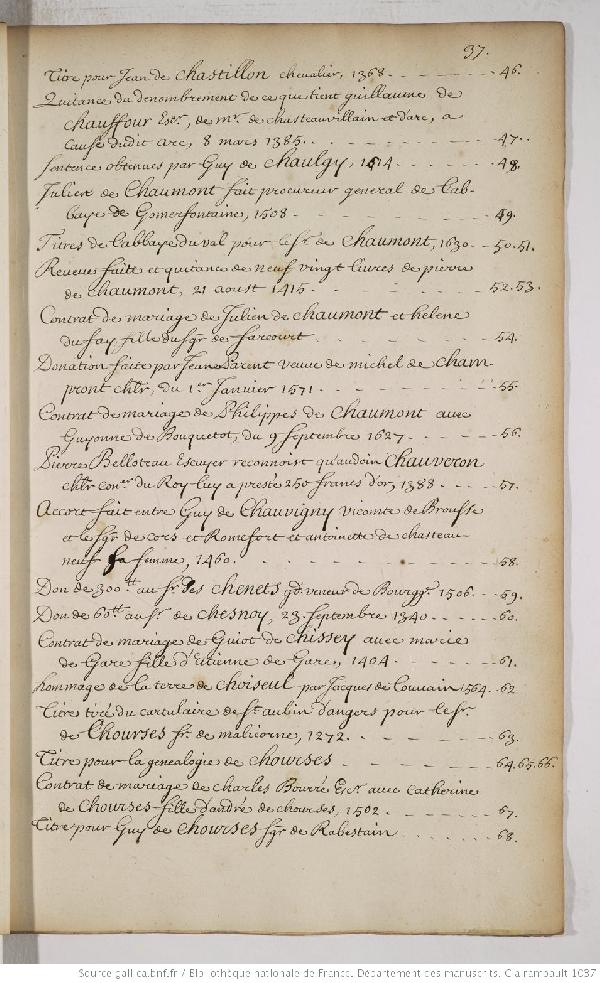 37.
Titre pour Jean de Chastillon chevalier, 1368. - - - - - - 46.
Quitance du denombrement de ce que tient guillaume de
chauffour Escr., de mr. de chasteauvillain et darc, a
cause dudit arc, 8 mars 1385. - - - - - - 47.
Sentence obtenues par Guy de Chaulgy, 1414 - - - - - 48.
Julien de Chaumont fait procureur general de l'ab-
baye de Gomerfontaine, 1508 - - - - - - 49.
Titres de l'abbaye du val pour le sr. de Chaumont, 1630. - - 50.51.
Reveue faite et quitance de neuf vingt livres de pierre
de Chaumont, 21 aoust 1415. - - - - - 52.53.
Contrat de mariage de Julien de Chaumont et helene
du fay fille du sgr de farcourt - - - - - - 54.
Donation faite par Jeane Parent veuve de michel de Cham-
pront chlr, du 1er Janvier 1571. - - - - - - 55.
Contrat de mariage de Philippes de Chaumont avec
Guyonne de Bouquetot, du 9 septembre 1627. - - - - - 56.
Pierre Belloteau Escuyer reconnoist qu'audoin Chauveron
chlr conr. du Roy luy a presté 250 francs d'or, 1388. - - - - 57.
Accort fait entre Guy de Chauvigny vicomte de Brousse
et le sgr de cors et Romefort et antoinette de chasteau-
neuf sa femme, 1460. - - - - - - 58.
Don de 300tt au sr des Chenets gd veneur de Bourgg. 1506. - - 59.
Don de 60tt au sr. de Chesnoy, 23 septembre 1340. - - - - 60.
Contrat de mariage de Guiot de Chissey avec marie
de Gare fille d'Etienne de Gare, 1404. - - - - - 61.
hommage de la terre de Choiseul par Jacques de Louvain 1564. 62.
Titre tiré du cartulaire de st. aubin d'angers pour le sr.
de Chourses sr. de malicorne, 1272. - - - - - - 63.
Titre pour la genealogie de Chourses - - - - - - 64.65.66.
Contrat de mariage de charles Bourré Escr. avec Catherine
de Chourses fille d'andré de chourses, 1502. - - - - - 67.
Titre pour Guy de Chourses sgr de Rabestain. . . . - - - 68.
Source gallica.bnf.fr / Bibliothèque nationale de France. Département des manuscrits. Clairambault 1087